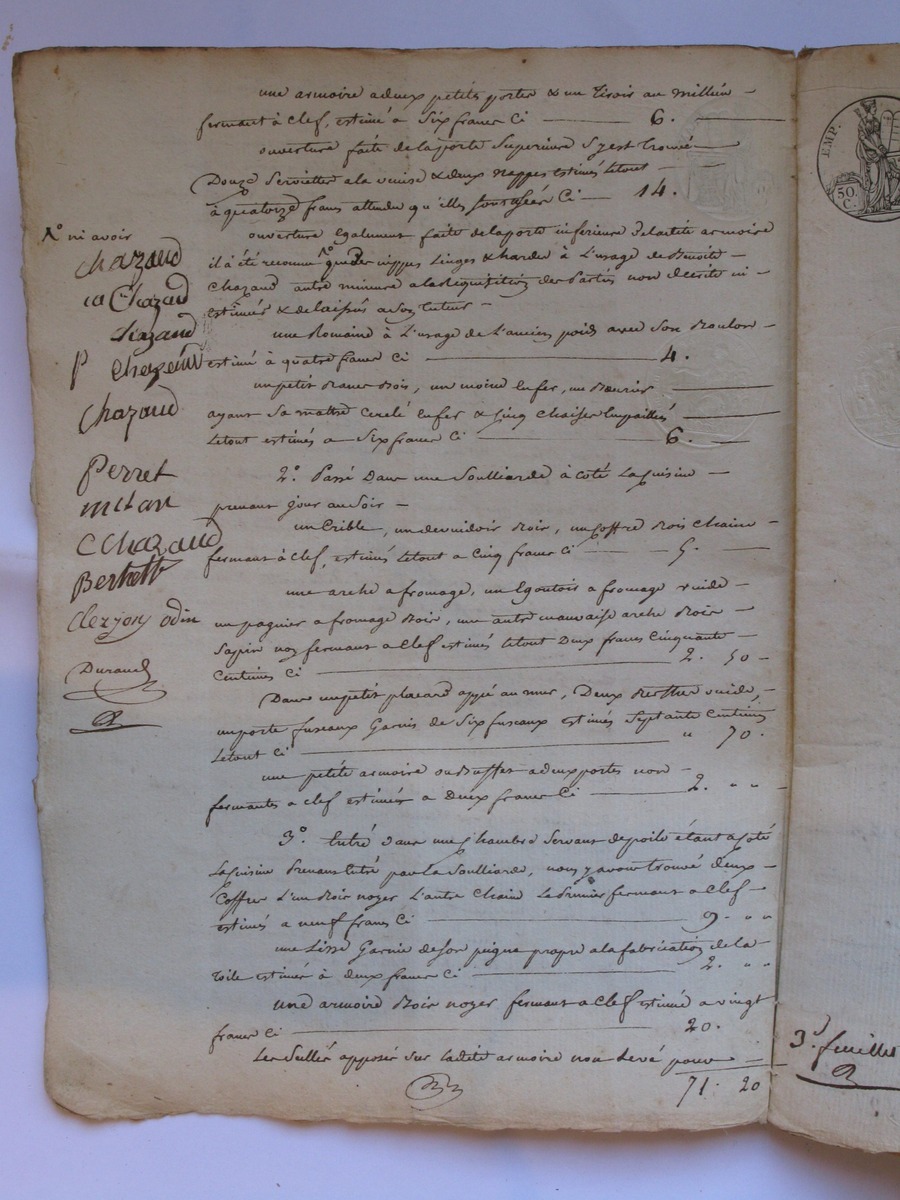 une armoire adeux petites portes & un Tiroir au millieu
fermant à Clef, estimé a Six francs Ci 6.
ouverture faite de la porte Superieure S'y est trouvé
Douze Serviettes a la venise & deux nappes estimés letout
à quatorze francs attendu qu'elles sont usées Ci 14.
ouverture Egalement faite de la porte inferieure de ladite armoire
il à été reconnu N° que des nippes Linges & hardes à L'usage de Benoite
Chazaud autre mineure a la Requisition des Parties non décrite ni
estimés & delaissés a son tuteur
une Romaine à L'usage de L'ancien poids avec Son Boulon
estimé à quatre francs Ci 4.
un petit Banc Bois, un moine Enfer, un Beurier
ayant Sa Cerclé Enfer & Cinq Chaises Empaillés
Letout estimés a Six francs Ci 6.
2° Passé Dans une Soulliarde à Coté La Cuisine
prenant jour au Soir
un Crible, un devuidoir Bois, un Coffre Bois Chaine
fermant à Clef, estimés Letout a Cinq francs Ci 5.
une arche a fromage, un Egoutois a fromage vuide
un pagnier a fromage Bois, une autre mauvaise arche Bois
Sapin non fermant a Clef estimés letout Deux francs Cinquante
Centimes Ci 2. 50
Dans un petit placard au mur, Deux vuide,
un porte fuseaux Garnis de Six fuseaux estimés Septante Centimes
Letout Ci " 70.
une petite armoire ou Buffet a deux portes non
fermantes a Clef estimés a Deux francs Ci 2. " "
3° Entré dans une Chambre Servant de poile étant a Coté
La Cuisine Prenant Entré par la Soulliarde, nous y avons trouvé deux
Coffres L'un Bois noyer L'autre Chaine Le Premier fermant a Clef
estimés a neuf francs Ci 9. " "
une Lisse Garnie de Son pigne propre a la fabrication de la
Toile estimés à deux francs Ci 2. " "
Une armoire Bois noyer fermant a Clef estimée a vingt
francs Ci 20.
Les Scellés apposés Sur ladite armoire non Levé pour
71. 20
N° ni avoir
Chazaud
Chazaud
Chazaud
P Chazaud
Chazaud
Perret
milan
C Chazaud
Berthett
Clerjon odin
Durand
EMP.
50.
C.
3e feuillet